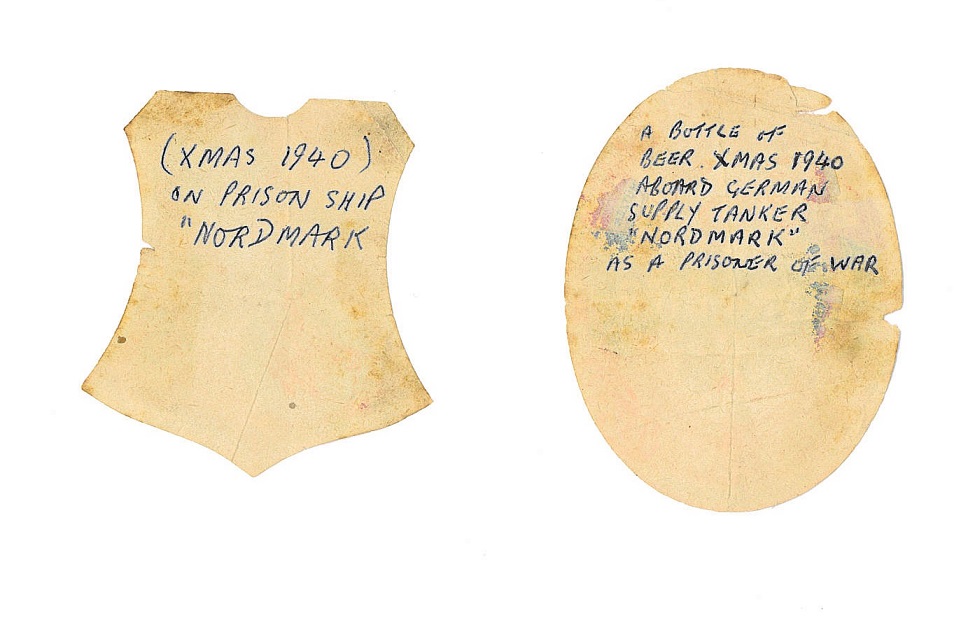 (XMAS 1940)
ON PRISON SHIP
"NORDMARK
A BOTTLE OF
BEER XMAS 1940
ABOARD GERMAN
SUPPLY TANKER
"NORDMARK"
AS A PRISONER OF WAR